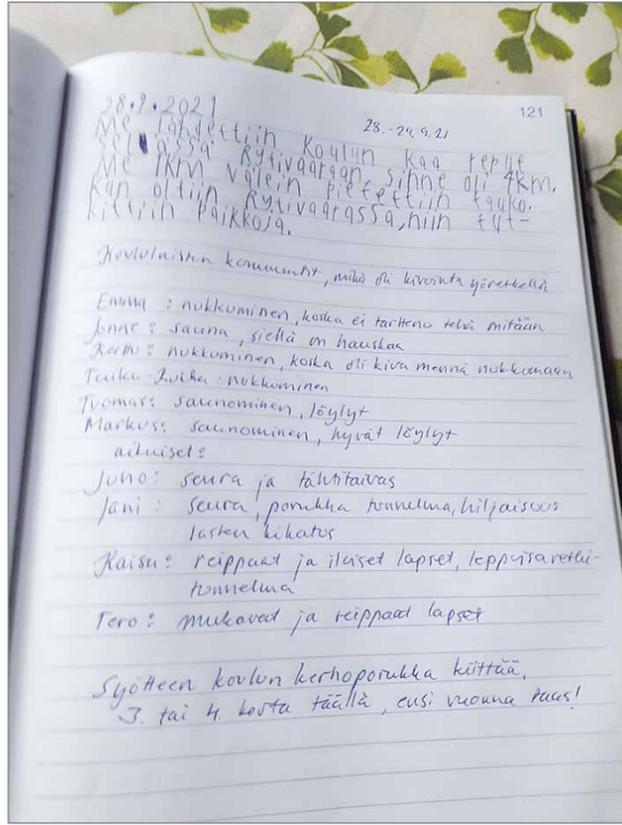 121
28.9.2021
28.-29.9.21
Me lähdettiin koulun kaa reput
selässä Rytivaaraan sinne oli 4km.
Me 1km välein pietettiin tauko.
Kun oltiin Rytivaarassa, niin tut-
kittiin paikkoja.
Koululaisten kommentit, mikä oli kivointa yöretkellä
Emma : nukkuminen, koska ei tartteno tehä mitään
: sauna, siellä on hauskaa
Kerttu : nukkuminen, koska oli kiva mennä nukkumaan
Tuuka-Jukka : nukkuminen
Tuomas: saunominen, löylyt
Markus: saunominen, hyvät löylyt
aikuiset:
Juho: seura ja tähtitaivas
Jani : seura, porukka tunnelma, hiljaisuus
lasten kikatus
Kaisu: reippaat ja iloiset lapset, leppoisa retki-
tunnelma
Tero: mukavat ja reippaat lapset
Syötteen koulun kerhoporukka kiittää,
3. tai 4. kerta täällä, ensi vuonna taas!